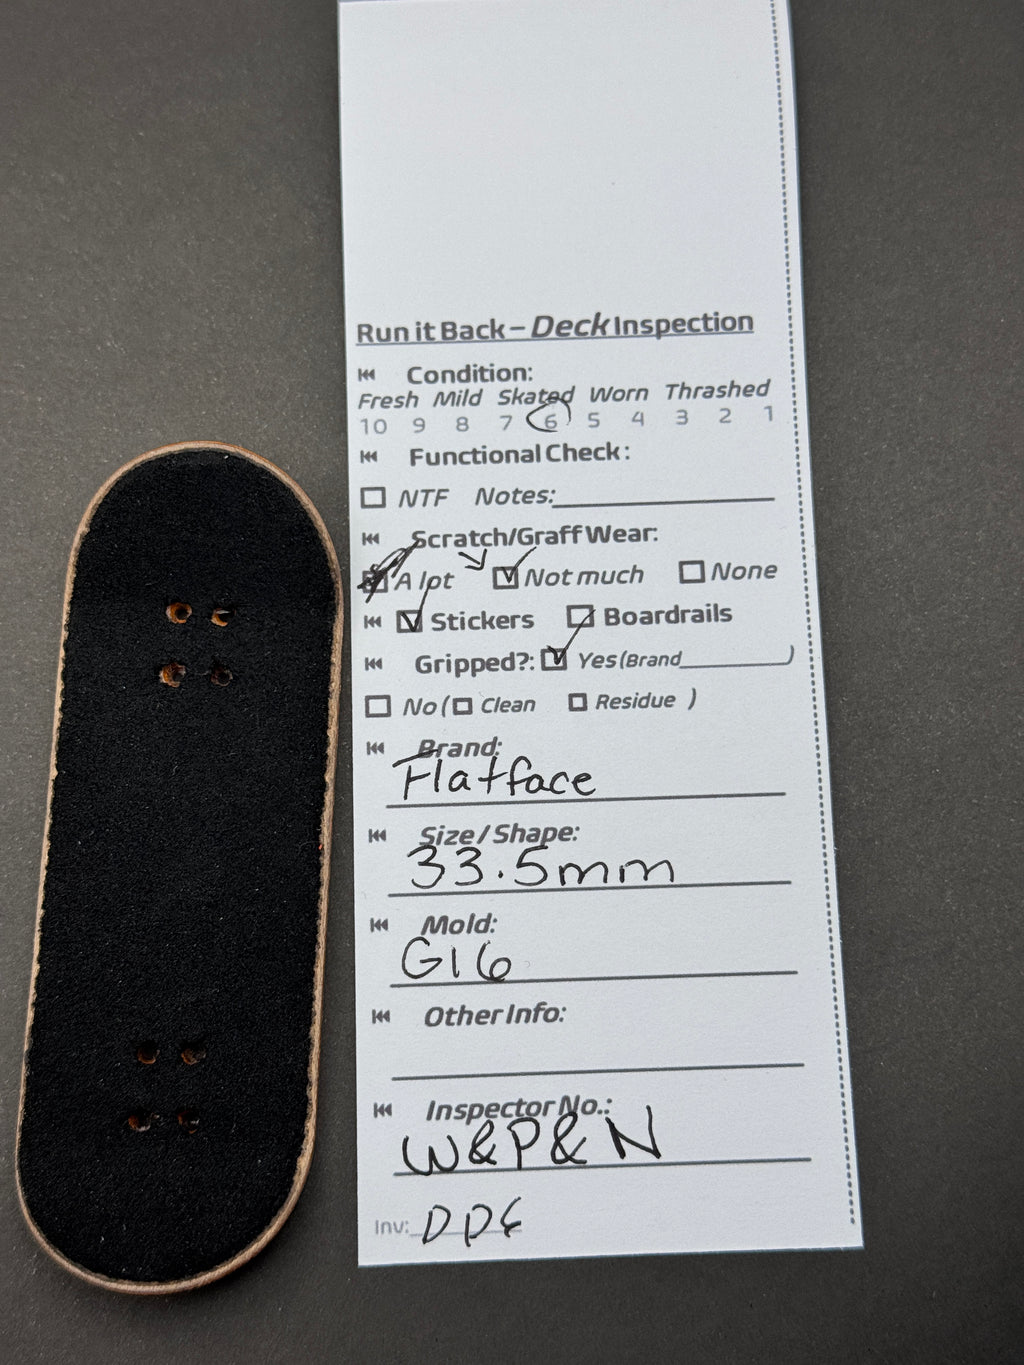 Run it Back – Deck Inspection
Condition:
Fresh Mild Skated Worn Thrashed
10 9 8 7 6 5 4 3 2 1
Functional Check:
NTF Notes:
Scratch/Graff Wear:
A lot Not much None
Stickers Boardrails
Gripped?: Yes (Brand )
No ( Clean Residue )
Brand:
Flatface
Size / Shape:
33.5mm
Mold:
G16
Other Info:
Inspector No.:
W&P&N
Inv: